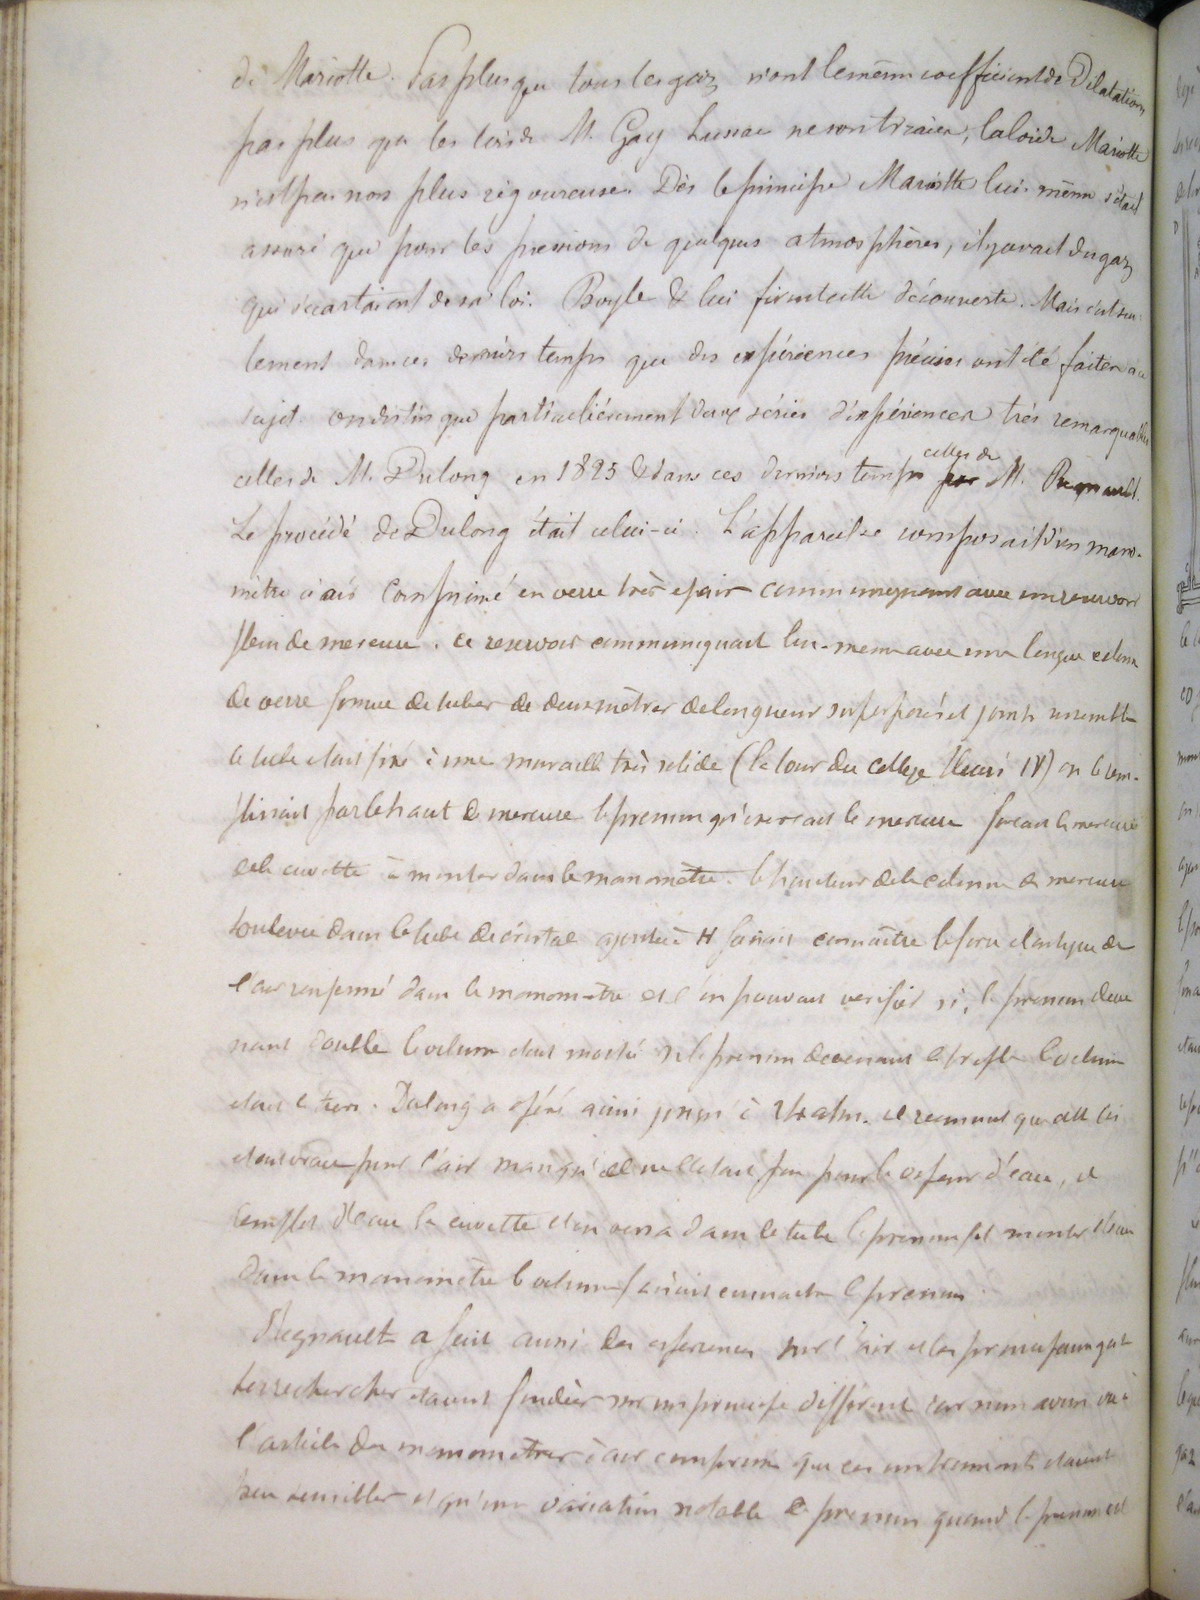 de Mariotte. Pas plus que tous les gaz n'ont le même coefficient de Dilatation
pas plus que les lois de M. Gay Lussac ne sont vraies, la loi de Mariotte
n'est pas non plus rigoureuse. Dès le principe Mariotte lui-même s'était
assuré que pour les pressions de quelques atmosphères, il y avait des gaz
qui s'écartaient de sa loi. Boyle & lui firent cette découverte. Mais c'est seu-
lement dans ces derniers temps que des expériences précises ont été faites à ce
sujet. on distingue particulièrement deux séries d'expériences très remarquables
celles de M. Dulong en 1825 & dans ces derniers temps celles de M. Regnault.
Le procédé de Dulong était celui-ci. L'appareil se composait d'un mano-
mètre à air comprimé en verre très épais communiquant avec un reservoir
plein de mercure. ce reservoir communiquait lui-même avec une longue colonne
de verre formée de tubes de deux mètres de longueur superposés et joints ensemble
le tube était fixé à une muraille très solide (la tour du college Henri IV) on le rem-
plissait par le haut de mercure la pression qu'exerçait le mercure forçait le mercure
de la cuvette à monter dans le manomètre. la hauteur de la colonne de mercure
soulevée dans le tube de cristal ajoutée à H faisait connaître la force elastique de
l'air renfermé dans le manomètre et l'on pouvait verifier si, la pression deve
nant double le volume était moitié si la pression devenant le triple le volume
était le tiers. Dulong a opéré ainsi jusqu'à atm. il reconnut que cette loi
était vraie pour l'air mais qu'elle ne l'était pas pour la vapeur d'eau, il
remplit d'eau la cuvette et on versa dans le tube la pression fit monter l'eau
dans le manomètre le volume faisait connaître la pression.
Regnault a fait aussi des expériences sur l'air et les principaux gaz
ses recherches étaient fondées sur un principe différent car nous avons vu à
l'article des manomètres à air comprimé que ces instruments étaient
peu sensibles et qu'une variation notable de pression quand la pression est